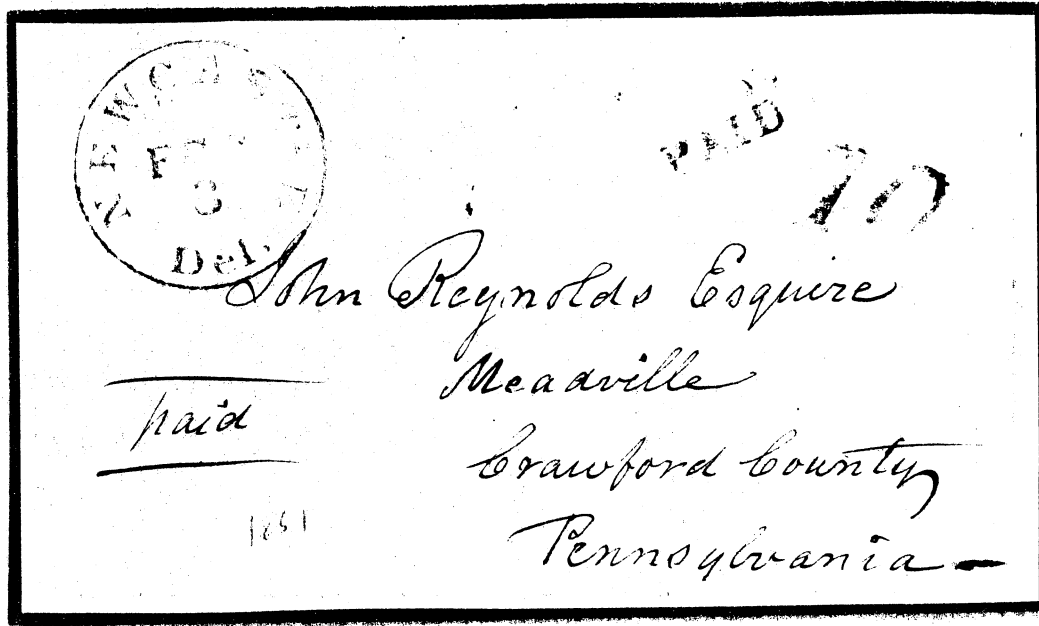 NEWCASTLE
FEB
3
Del.
PAID
10
John Reynolds Esquire
Meadville
paid
Crawford County
1851
Pennsylvania —